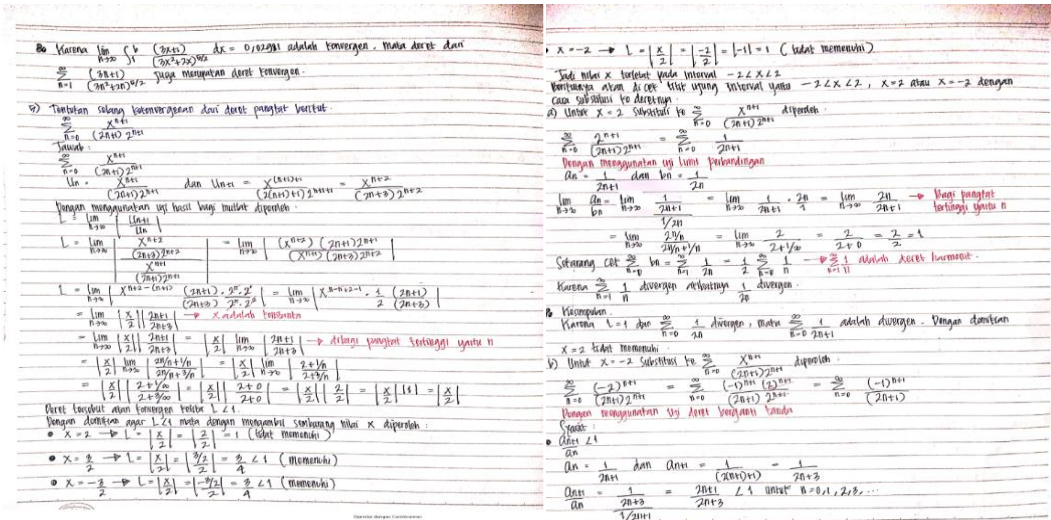 Karena lim n→∞ ∫₁ᵇ (3x+1)/(3x²+2x)^5/2 dx = 0,02981 adalah konvergen. maka deret dari
∞Σn=1 (3n+1)/(3n²+2n)^5/2 juga merupakan deret konvergen.
Tentukan selang kekonvergenan dari deret pangkat berikut.
∞Σn=0 x^n+1/(2n+1) 2^n+1
Jawab :
∞Σn=0 x^n+1/(2n+1) 2^n+1
Un = x^n+1/(2n+1)2^n+1 dan Un+1 = x^(n+1)+1/(2(n+1)+1) 2^n+1+1 = x^n+2/(2n+3) 2^n+2
Dengan menggunakan uji hasil bagi mutlak diperoleh :
L = lim n→∞ |Un+1/Un|
L = lim n→∞ |x^n+2/(2n+3) 2^n+2 / x^n+1/(2n+1)2^n+1| = lim n→∞ |(x^n+2) (2n+1)2^n+1/(x^n+1) (2n+3) 2^n+2|
L = lim n→∞ |x^n+2-(n+1) (2n+1) . 2^n . 2¹/(2n+3) 2^n . 2²| = lim n→∞ |x^n-n+2-1 . 1/2 (2n+1)/(2n+3)|
= lim n→∞ |x/2| |2n+1/2n+3| → x adalah konstanta
= lim n→∞ |x/2| |2n+1/2n+3| = |x/2| lim n→∞ |2n+1/2n+3| → dibagi pangkat tertinggi yaitu n
= |x/2| lim n→∞ |2n/n+1/n / 2n/n+3/n| = |x/2| lim n→∞ |2+1/n / 2+3/n|
= |x/2| |2+1/∞ / 2+3/∞| = |x/2| |2+0/2+0| = |x/2| |2/2| = |x/2| |1| = |x/2|
Deret tersebut akan konvergen ketika L<1.
Dengan demikian agar L<1 maka dengan mengambil sembarang nilai x diperoleh :
• x = 2 → L = |x/2| = |2/2| = 1 (tidak memenuhi)
• x = 3/2 → L = |x/2| = |3/2 / 2| = 3/4 < 1 (memenuhi)
• x = -3/2 → L = |x/2| = |-3/2 / 2| = 3/4 < 1 (memenuhi)
• x = -2 → L = |x/2| = |-2/2| = |-1| = 1 (tidak memenuhi)
Jadi nilai x terletak pada interval -2<x<2
Berikutnya akan di cek titik ujung interval yaitu -2<x<2, x=2 atau x=-2 dengan
cara substitusi ke deretnya.
a) Untuk x = 2 substitusi ke ∞Σn=0 x^n+1/(2n+1) 2^n+1 diperoleh
∞Σn=0 2^n+1/(2n+1) 2^n+1 = ∞Σn=0 1/2n+1
Dengan menggunakan uji limit perbandingan
an = 1/2n+1 dan bn = 1/2n
lim n→∞ an/bn = lim n→∞ 1/2n+1 / 1/2n = lim n→∞ 1/2n+1 . 2n/1 = lim n→∞ 2n/2n+1 → Bagi pangkat tertinggi yaitu n
= lim n→∞ 2n/n / 2n/n+1/n = lim n→∞ 2/2+1/∞ = 2/2+0 = 2/2 = 1
Sekarang cek ∞Σn=0 bn = ∞Σn=1 1/2n = 1/2 ∞Σn=0 1/n → ∞Σn=1 1/n adalah deret harmonik.
Karena ∞Σn=1 1/n divergen akibatnya 1/2n divergen.
Kesimpulan.
Karena L=1 dan ∞Σn=0 1/2n divergen, maka ∞Σn=0 1/2n+1 adalah divergen. Dengan demikian
x = 2 tidak memenuhi
b) Untuk x = -2 substitusi ke ∞Σn=0 x^n+1/(2n+1)2^n+1 diperoleh.
∞Σn=0 (-2)^n+1/(2n+1)2^n+1 = ∞Σn=0 (-1)^n+1 (2)^n+1/(2n+1) 2^n+1 = ∞Σn=0 (-1)^n+1/(2n+1)
Dengan menggunakan uji deret berganti tanda
Syarat :
• an+1/an < 1
an = 1/2n+1 dan an+1 = 1/(2(n+1)+1) = 1/2n+3
an+1/an = 1/2n+3 / 1/2n+1 = 2n+1/2n+3 < 1 untuk n=0,1,2,3,...